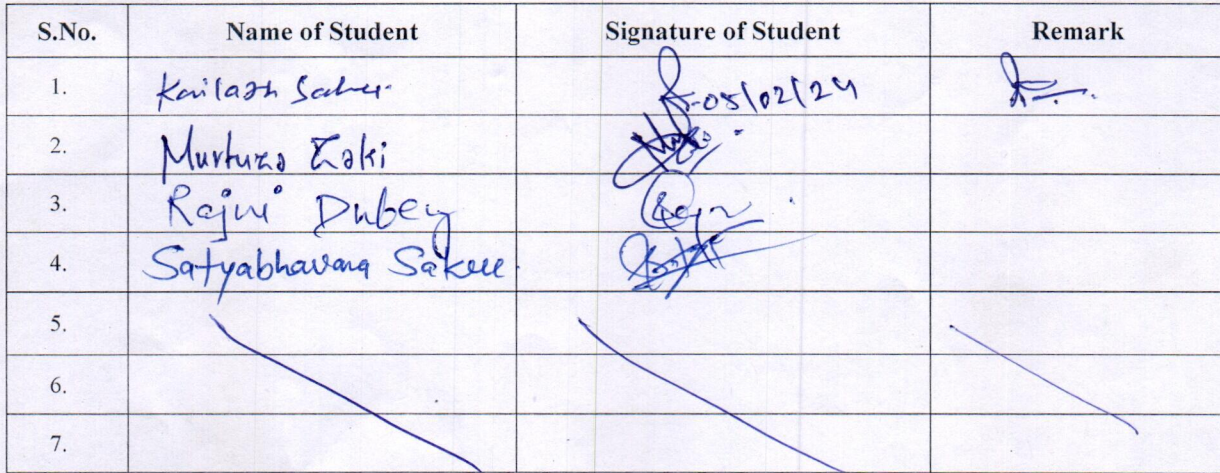 S.No. Name of Student Signature of Student Remark
1. Kailash Sahu 05/02/24
2. Murtuza Zaki
3. Rajni Dubey
4. Satyabhavana Sakre
5.
6.
7.